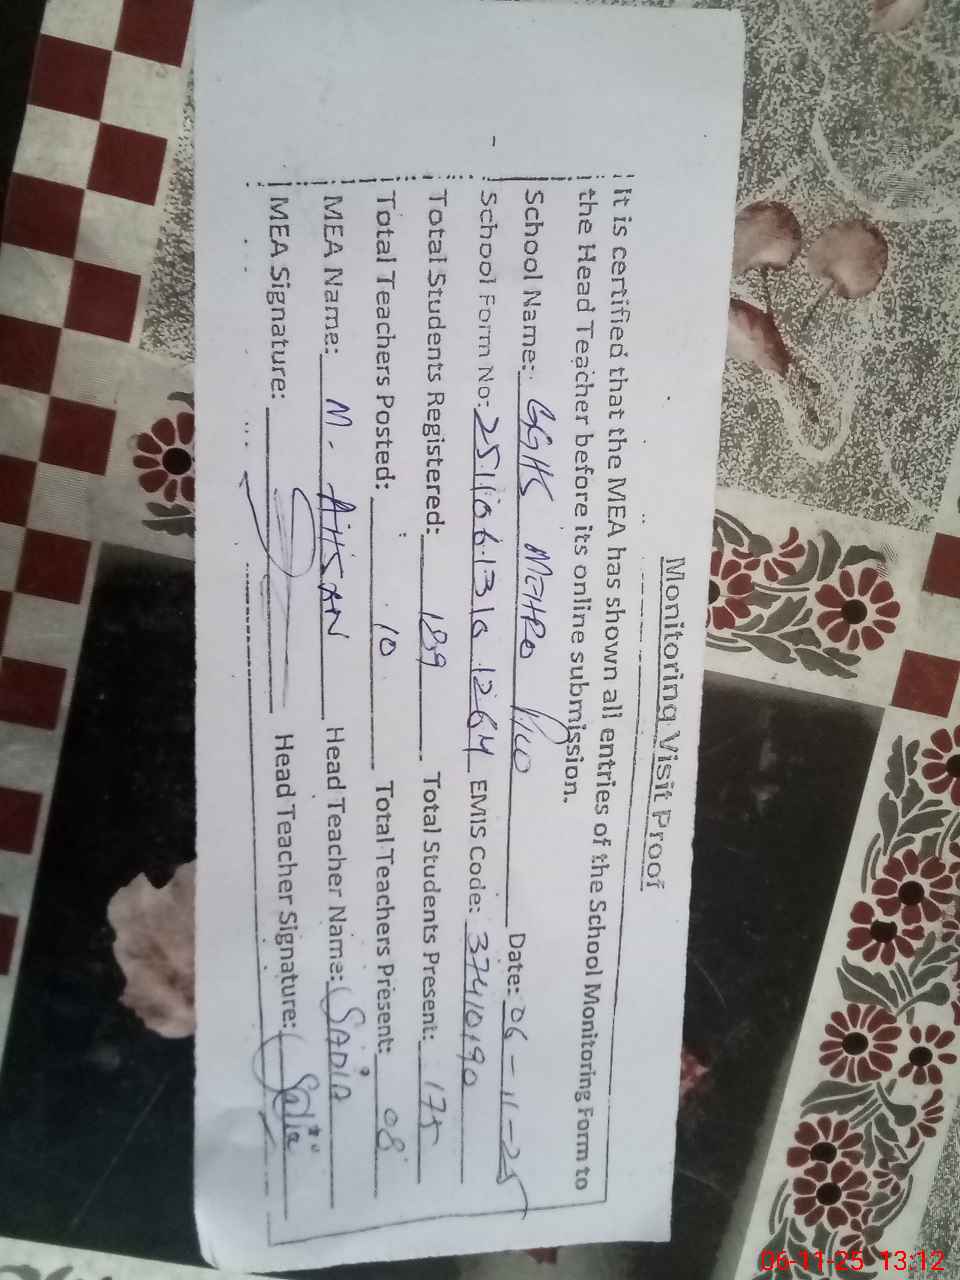 Monitoring Visit Proof
It is certified that the MEA has shown all entries of the School Monitoring Form to
the Head Teacher before its online submission.
School Name: GGHS MEHRO Date: 06-11-25
School Form No: EMIS Code: 37410190
Total Students Registered: 189 Total Students Present: 175
Total Teachers Posted: 10 Total Teachers Present: 08
MEA Name: M. AHSAN Head Teacher Name: SADIA
MEA Signature: Head Teacher Signature: Sadia
06-11-25 13:12